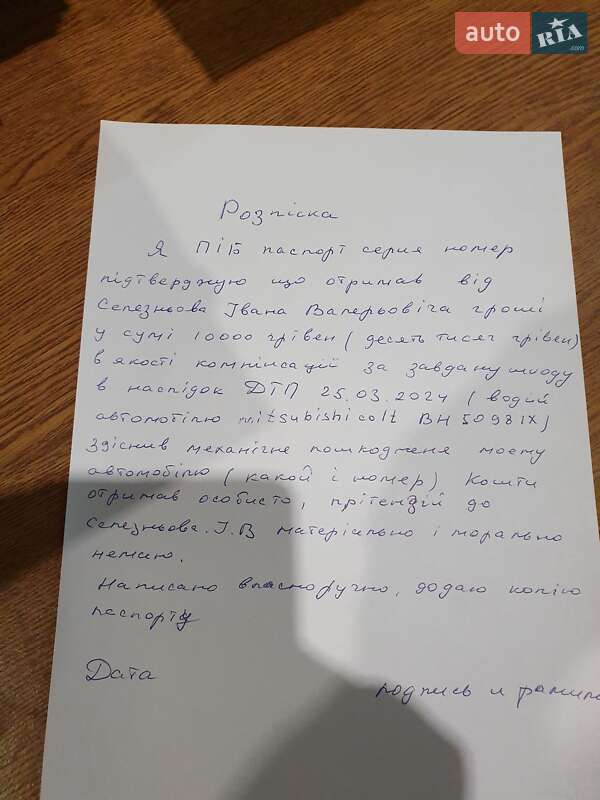 auto RIA .com
Розпіска
Я ПІБ паспорт серия номер
підтверджую що отримав від
Селезньова Івана Валерьовіча гроші
у сумі 10000 грівен (десять тисяч грівен)
в якості компінсації за завдану шкоду
в наспідок ДТП 25.03.2024 (водій
автомотілю mitsubishi colt ВН 5098 ІХ)
Здіснив механігне пошкоджене моему
автомобілю (какой і номер) Кошти
отримав особисто, прітензій до
Селезньова.І.В матеріально і морально
немаю.
Написано власноручно, додаю копію
паспорту
Дата
подпись и фамили